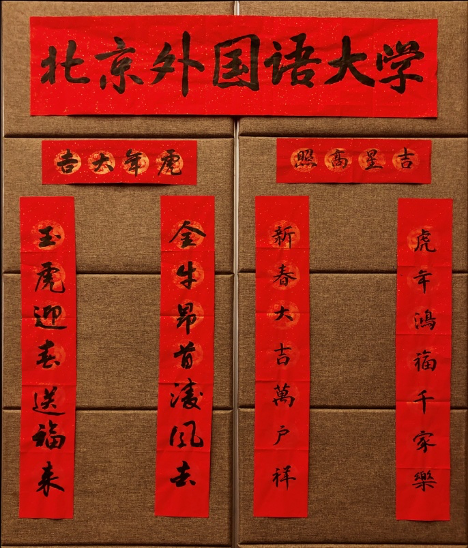 北京外国语大学
虎年大吉
金牛昂首凌风去
玉虎迎春送福来
吉星高照
虎年鸿福千家樂
新春大吉萬户祥